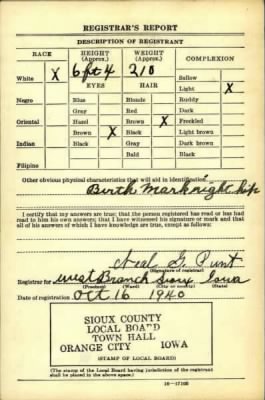 REGISTRAR'S REPORT
DESCRIPTION OF REGISTRANT
RACE
HEIGHT (Approx.)
WEIGHT (Approx.)
COMPLEXION
White X
6 ft 4
210
Sallow
EYES
HAIR
Light X
Negro
Blue
Blonde
Ruddy
Gray
Red
Dark
Oriental
Hazel
Black
Freckled
Brown X
Brown X
Light brown
Indian
Black
Gray
Dark brown
Bald
Black
Filipino
Other obvious physical characteristics that will aid in identification
Birth Mark right hip
I certify that my answers are true; that the person registered has read or has had
read to him his own answers; that I have witnessed his signature or mark and that
all of his answers of which I have knowledge are true, except as follows:
Neal G. Punt
(Signature of registrar)
Registrar for West Branch Sioux Iowa
(Precinct) (Ward) (City or county) (State)
Date of registration Oct 16 1940
SIOUX COUNTY
LOCAL BOARD
TOWN HALL
ORANGE CITY IOWA
(STAMP OF LOCAL BOARD)
(The stamp of the Local Board having jurisdiction of the registrant
shall be placed in the above space.)